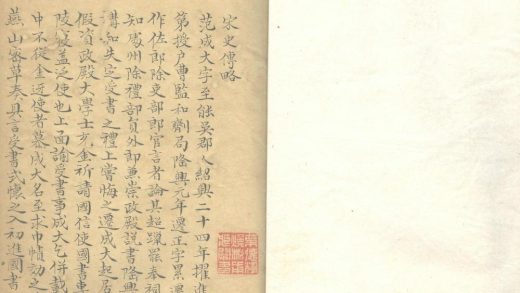 宋史傳略
范成大字至能吳郡人紹興二十四年擢進
第授戶曹監和劑局隆興元年遷正字累遷
作佐郎除吏部郎官言者論其超躐罷奉祠
知處州除禮部員外郎兼崇政殿說書隆興
講和失定受書之禮上嘗悔之遷成大起居
假資政殿大學士充金祈請國信使國書專
陵寢蓋泛使也上面諭受書事成大乞併載
中不從金迎使者慕成大名至求巾幘効之
燕山密草奏具言受書式懷之入初進國書